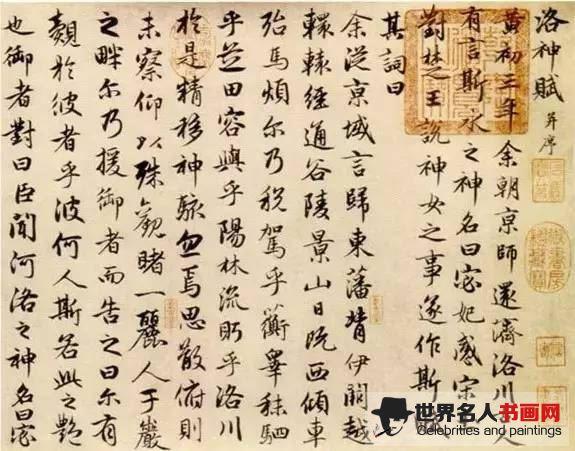 洛神賦 并序
黃初三年余朝京師還濟洛川人
有言斯水之神名曰宓妃感宋
對楚之王說神女之事遂作斯
其詞曰
余從京域言歸東藩背伊闕越
轘轅經通谷陵景山日既西傾車
殆馬煩尔乃稅駕乎蘅皋秣駟
乎芝田容與乎陽林流眄乎洛川
於是精移神駭忽焉思散俯則
未察仰以殊觀睹一麗人于巖
之畔尔乃援御者而告之曰尔有
覿於彼者乎彼何人斯若此之艷
也御者對曰臣聞河洛之神名曰宓
世界名人书画网
Celebrities and paintings